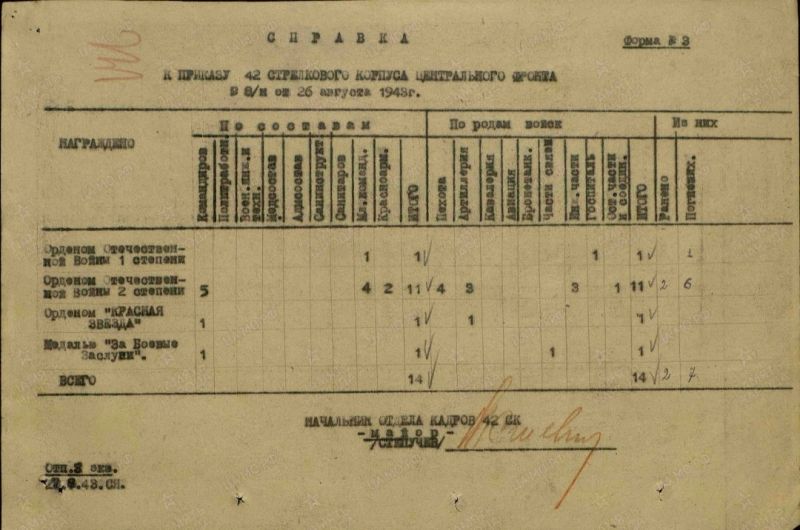 СПРАВКА
Форма № 3
К ПРИКАЗУ 42 СТРЕЛКОВОГО КОРПУСА ЦЕНТРАЛЬНОГО ФРОНТА
№ 8/н от 26 августа 1943г.
НАГРАЖДЕНО По составам По родам войск Из них
Командиров Политработн. Воен.инж.и техн. Медсостав Админсостав Санинструкт Санитаров Мл.команд. Красноарм. ИТОГО Пехота Артиллерия Кавалерия Авиация Бронетанк. Части связи Инж.части Госпиталь Ост.части и соедин. ИТОГО Ранено Погибших.
Орденом Отечествен-
ной Войны 1 степени 1 1 1 1 1
Орденом Отечествен-
ной Войны 2 степени 5 4 2 11 4 3 3 1 11 2 6
Орденом "КРАСНАЯ
ЗВЕЗДА" 1 1 1 1
Медалью "За Боевые
Заслуги". 1 1 1 1
ВСЕГО 14 14 2 7
НАЧАЛЬНИК ОТДЕЛА КАДРОВ 42 СК
- майор -
Отп.2 экз.
.43.СЯ.